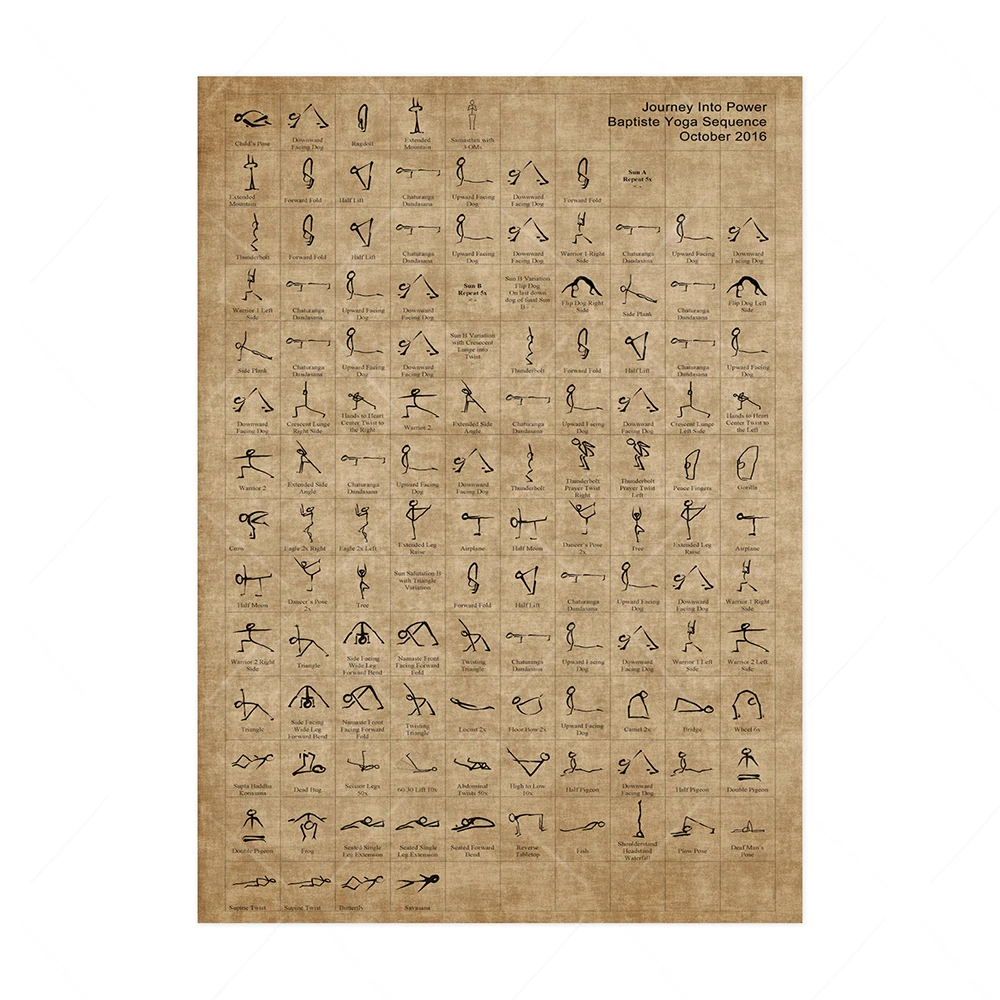 Journey Into Power
Baptiste Yoga Sequence
October 2016
Child's Pose
Downward
Facing Dog
Ragdoll
Extended
Mountain
Samasthiti with
3 OMs
Extended
Mountain
Forward Fold
Half Lift
Chaturanga
Dandasana
Upward Facing
Dog
Downward
Facing Dog
Forward Fold
Sun A
Repeat 5x
Thunderbolt
Forward Fold
Half Lift
Chaturanga
Dandasana
Upward Facing
Dog
Downward
Facing Dog
Warrior 1 Right
Side
Chaturanga
Dandasana
Upward Facing
Dog
Downward
Facing Dog
Warrior 1 Left
Side
Chaturanga
Dandasana
Upward Facing
Dog
Downward
Facing Dog
Sun B
Repeat 5x
Sun B Variation
Flip Dog
On last down
dog of final Sun
B
Flip Dog Right
Side
Side Plank
Chaturanga
Dandasana
Flip Dog Left
Side
Side Plank
Chaturanga
Dandasana
Upward Facing
Dog
Downward
Facing Dog
Sun B Variation
with Crescent
Lunge into
Twist
Thunderbolt
Forward Fold
Half Lift
Chaturanga
Dandasana
Upward Facing
Dog
Downward
Facing Dog
Crescent Lunge
Right Side
Hands to Heart
Center Twist to
the Right
Warrior 2
Extended Side
Angle
Chaturanga
Dandasana
Upward Facing
Dog
Downward
Facing Dog
Crescent Lunge
Left Side
Hands to Heart
Center Twist to
the Left
Warrior 2
Extended Side
Angle
Chaturanga
Dandasana
Upward Facing
Dog
Downward
Facing Dog
Thunderbolt
Thunderbolt
Prayer Twist
Right
Thunderbolt
Prayer Twist
Left
Peace Fingers
Gorilla
Crow
Eagle 2x Right
Eagle 2x Left
Extended Leg
Raise
Airplane
Half Moon
Dancer's Pose
2x
Tree
Extended Leg
Raise
Airplane
Half Moon
Dancer's Pose
2x
Tree
Sun Salutation B
with Triangle
Variation
Forward Fold
Half Lift
Chaturanga
Dandasana
Upward Facing
Dog
Downward
Facing Dog
Warrior 1 Right
Side
Warrior 2 Right
Side
Triangle
Side Facing
Wide Leg
Forward Bend
Namaste Front
Facing Forward
Fold
Twisting
Triangle
Chaturanga
Dandasana
Upward Facing
Dog
Downward
Facing Dog
Warrior 1 Left
Side
Warrior 2 Left
Side
Triangle
Side Facing
Wide Leg
Forward Bend
Namaste Front
Facing Forward
Fold
Twisting
Triangle
Locust 2x
Floor Bow 2x
Upward Facing
Dog
Camel 2x
Bridge
Wheel 6x
Supta Baddha
Konasana
Dead Bug
Scissor Legs
50x
60 30 Lift 10x
Abdominal
Twists 50x
High to Low
10x
Half Pigeon
Downward
Facing Dog
Half Pigeon
Double Pigeon
Double Pigeon
Frog
Seated Single
Leg Extension
Seated Single
Leg Extension
Seated Forward
Bend
Reverse
Tabletop
Fish
Shoulderstand
Headstand
Waterfall
Plow Pose
Deaf Man's
Pose
Supine Twist
Supine Twist
Butterfly
Savasana